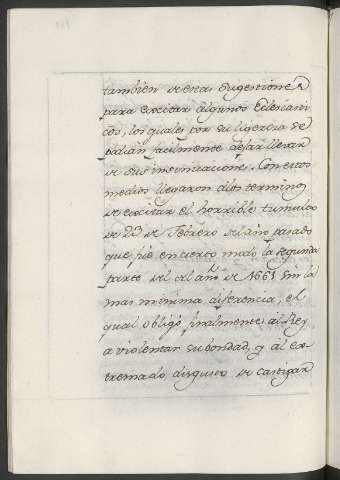 tambien de estas sugestiones
para excitar algunos Eclesiasti
cos, los quales por su ligereza se
podian facilmente dejar llevar
de sus insinuaciones. Con estos
medios llegaron a los terminos
de excitar el horrible tumulto
de 23 de Febrero del año pasado
que fue en cierto modo la segunda
parte del del año de 1661 sin la
mas minima diferencia, el
qual obligó finalmente al Rey
a violentar su bondad, y al ex
tremado disgusto de castigar